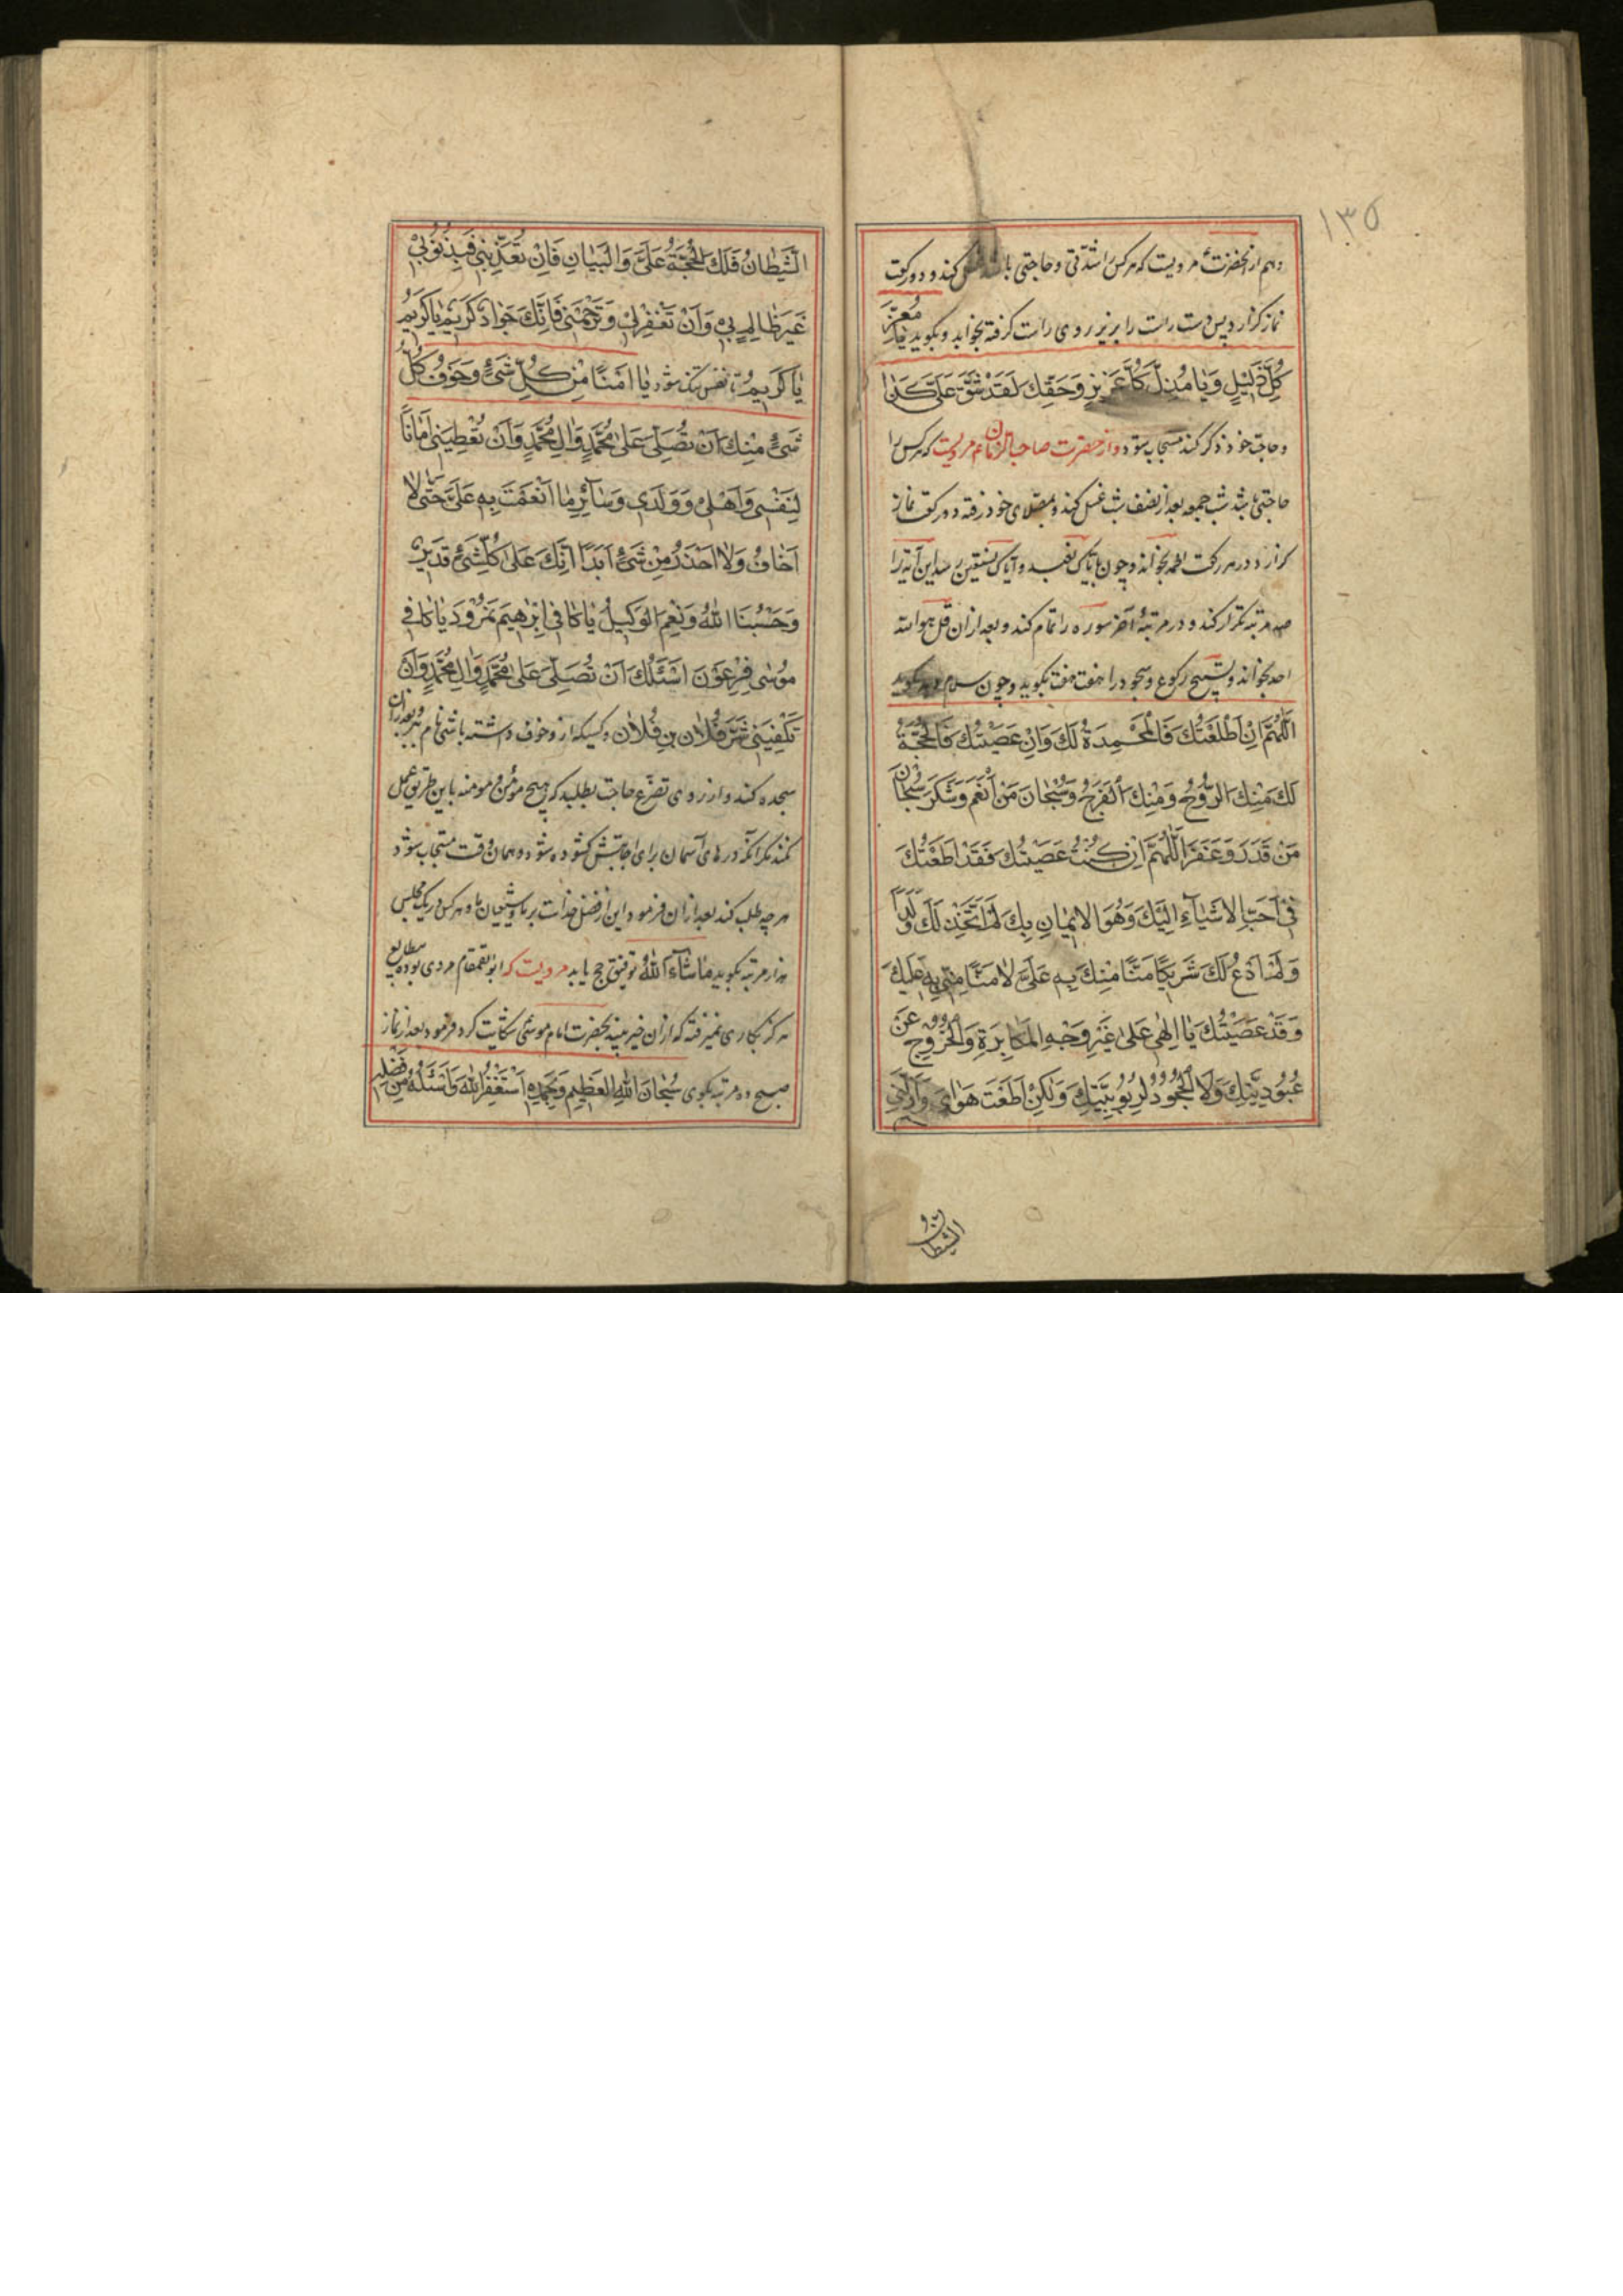 ۱۳۵
و هم از آنحضرت مرویست که هر کس را شدّتی و حاجتی باشد غسل کند و دو رکعت
نماز گزارد پس دست راست را بزیر روی راست گرفته بخوابد و بگوید یٰا مُعِزَّ
كُلِّ ذَلِيْلٍ وَيٰا مُذِلَّ كُلِّ عَزِيْزٍ وَحَقِّكَ لَقَدْ شَقَّ عَلَىَّ كَذٰا
و حاجت خود ذکر کند مستجاب شود و از حضرت صاحب الزمان ع م مرویست که هر کس را
حاجتی باشد شب جمعه بعد از نصف شب غسل کند و بمصلای خود رفته دو رکعت نماز
گزارد در هر رکعت الحمد بخواند و چون بایاک نعبد و آیاک نستعین رسد این آیه را
صد مرتبه تکرار کند و در مرتبهٔ آخر سوره را تمام کند و بعد از ان قل هو الله
احد بخواند و تسبیح رکوع و سجود را هفت هفت بگوید و چون سلام دهد بگوید
اَللّٰهُمَّ اِنْ اَطَعْتُكَ فَالْمَحْمِدَةُ لَكَ وَاِنْ عَصَيْتُكَ فَالْحُجَّةُ
لَكَ مِنْكَ الرَّوْحُ وَمِنْكَ الْفَرَجُ وَسُبْحٰانَ مَنْ اَنْعَمَ وَشَكَرَ سُبْحٰانَ
مَنْ قَدَرَ وَغَفَرَ اَللّٰهُمَّ اِنْ كُنْتُ عَصَيْتُكَ فَقَدْ اَطَعْتُكَ
فِىْ اَحَبِّ الْاَشْيٰآءِ اِلَيْكَ وَهُوَ الْايْمٰانِ بِكَ لَمْ اَتَّخِذْ لَكَ وَلَدًا
وَلَمْ اَدْعُ لَكَ شَرِيْكًا مَنًّا مِنْكَ بِهِ عَلَىَّ لٰا مَنًّا مِنّى بِهِ عَلَيْكَ
وَقَدْ عَصَيْتُكَ يٰا اِلٰهى عَلىٰ غَيْرِ وَجْهِ الْمُكٰابِرَةِ وَالْخُرُوْجِ عَنْ
عُبُوْدِيَّتِكَ وَلَا الْجُحُوْدُ لِرُبُوْبِيَّتِكَ وَلٰكِنْ اَطَعْتُ هَوٰاىَ وَاَزَلَّنِى
الشیطان
الشَّيْطٰانُ فَلَكَ الْحُجَّةُ عَلَىَّ وَالْبَيٰانِ فَاِنْ تُعَذِّبْنِى فَبِذُنُوْبِىْ
غَيْرَ ظٰالِمٍ بِىْ وَاَنْ تَغْفِرْلِىْ وَتَرْحَمْنِى فَاِنَّكَ جَوٰادٌ كَرِيْمٌ يٰا كَرِيْمُ
يٰا كَرِيْمُ تا نفس تنگ شود يٰا اٰمَنًا مِنْ كُلِّ شَىْءٍ وَخَوْفُ كُلِّ
شَىْءٍ مِنْكَ اَنْ تُصَلِّىَ عَلىٰ مُحَمَّدٍ وَاٰلِ مُحَمَّدٍ وَاَنْ تُعْطِيَنِى اَمٰانًا
لِنَفْسِى وَاَهْلِى وَوَلَدِى وَسٰآئِرِ مٰا اَنْعَمْتَ بِهِ عَلَىَّ حَتّٰى لٰا
اَخٰافُ وَلٰا اَحْذَرُ مِنْ شَىْءٍ اَبَدًا اِنَّكَ عَلىٰ كُلِّ شَىْءٍ قَدِيْرٌ
وَحَسْبُنَا اللّٰهُ وَنِعْمَ الْوَكِيْلُ يٰا كٰافِىَ اِبْرٰهِيْمَ نَمْرُوْدَ يٰا كٰافِىَ
مُوْسٰى فِرْعَوْنَ اَسْئَلُكَ اَنْ تُصَلِّىَ عَلىٰ مُحَمَّدٍ وَاٰلِ مُحَمَّدٍ وَاَنْ
تَكْفِيَنِى شَرَّ فُلٰانِ بِنِ فُلٰان و کسیکه از و خوف داشته باشی نام برد و بعد از ان
سجده کند و از روی تضرّع حاجت بطلبد که هیچ مؤمن و مومنه باین طریق عمل
نکند مگر آنکه درهای آسمان برای اجابتش گشوده شود و همان وقت مستجاب شود
هر چه طلب کند بعد از ان فرمود این از فضل خداست بر ما و شیعیان ما و هر کس در یک مجلس
هزار مرتبه بگوید مٰا شٰآءَ اللّٰهُ توفیق حج یابد مرویست که ابو القمقام مردی بوده
هرگز بکاری نمیرفته که از ان خیر بیند بحضرت امام موسی شکایت کرد فرمود بعد از نماز
صبح ده مرتبه بگوی سُبْحٰانَ اللّٰهِ الْعَظِيْمِ وَبِحَمْدِهِ اَسْتَغْفِرُ اللّٰهَ وَاَسْئَلُهُ مِنْ فَضْلِهِ